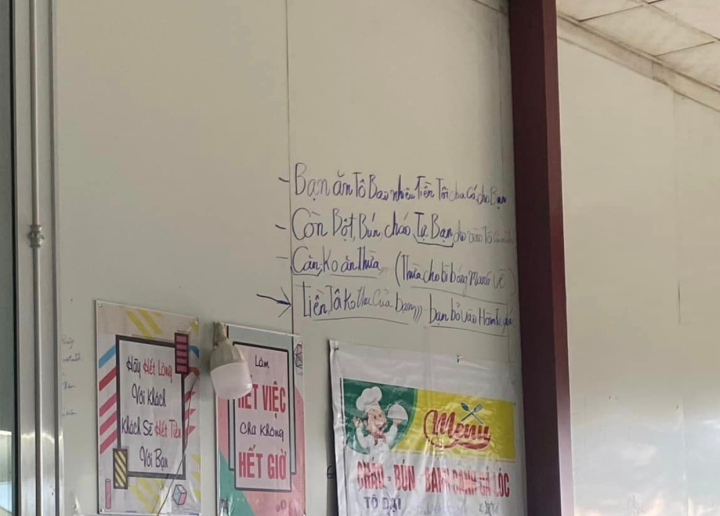 - Bạn ăn Tô Bao nhiêu Tiền Tôi chưa Cá cho Bạn
- Còn Bột, Bún, cháo, Tự Bạn cho vào Tô
- Cần Ko ăn Thừa, (Thừa cho bì bóng Mang về)
→ Tiền Tôi ko thu Của bạn))) bạn bỏ vào Hòm
Hãy Hết Lòng
Với Khách
Khách Sẽ Hết Tiền
Với Bạn
Làm
HẾT VIỆC
Chứ Không
HẾT GIỜ
Menu
CHÁO - BÚN - BÁNH CANH CÁ LÓC
TÔ ĐẠI